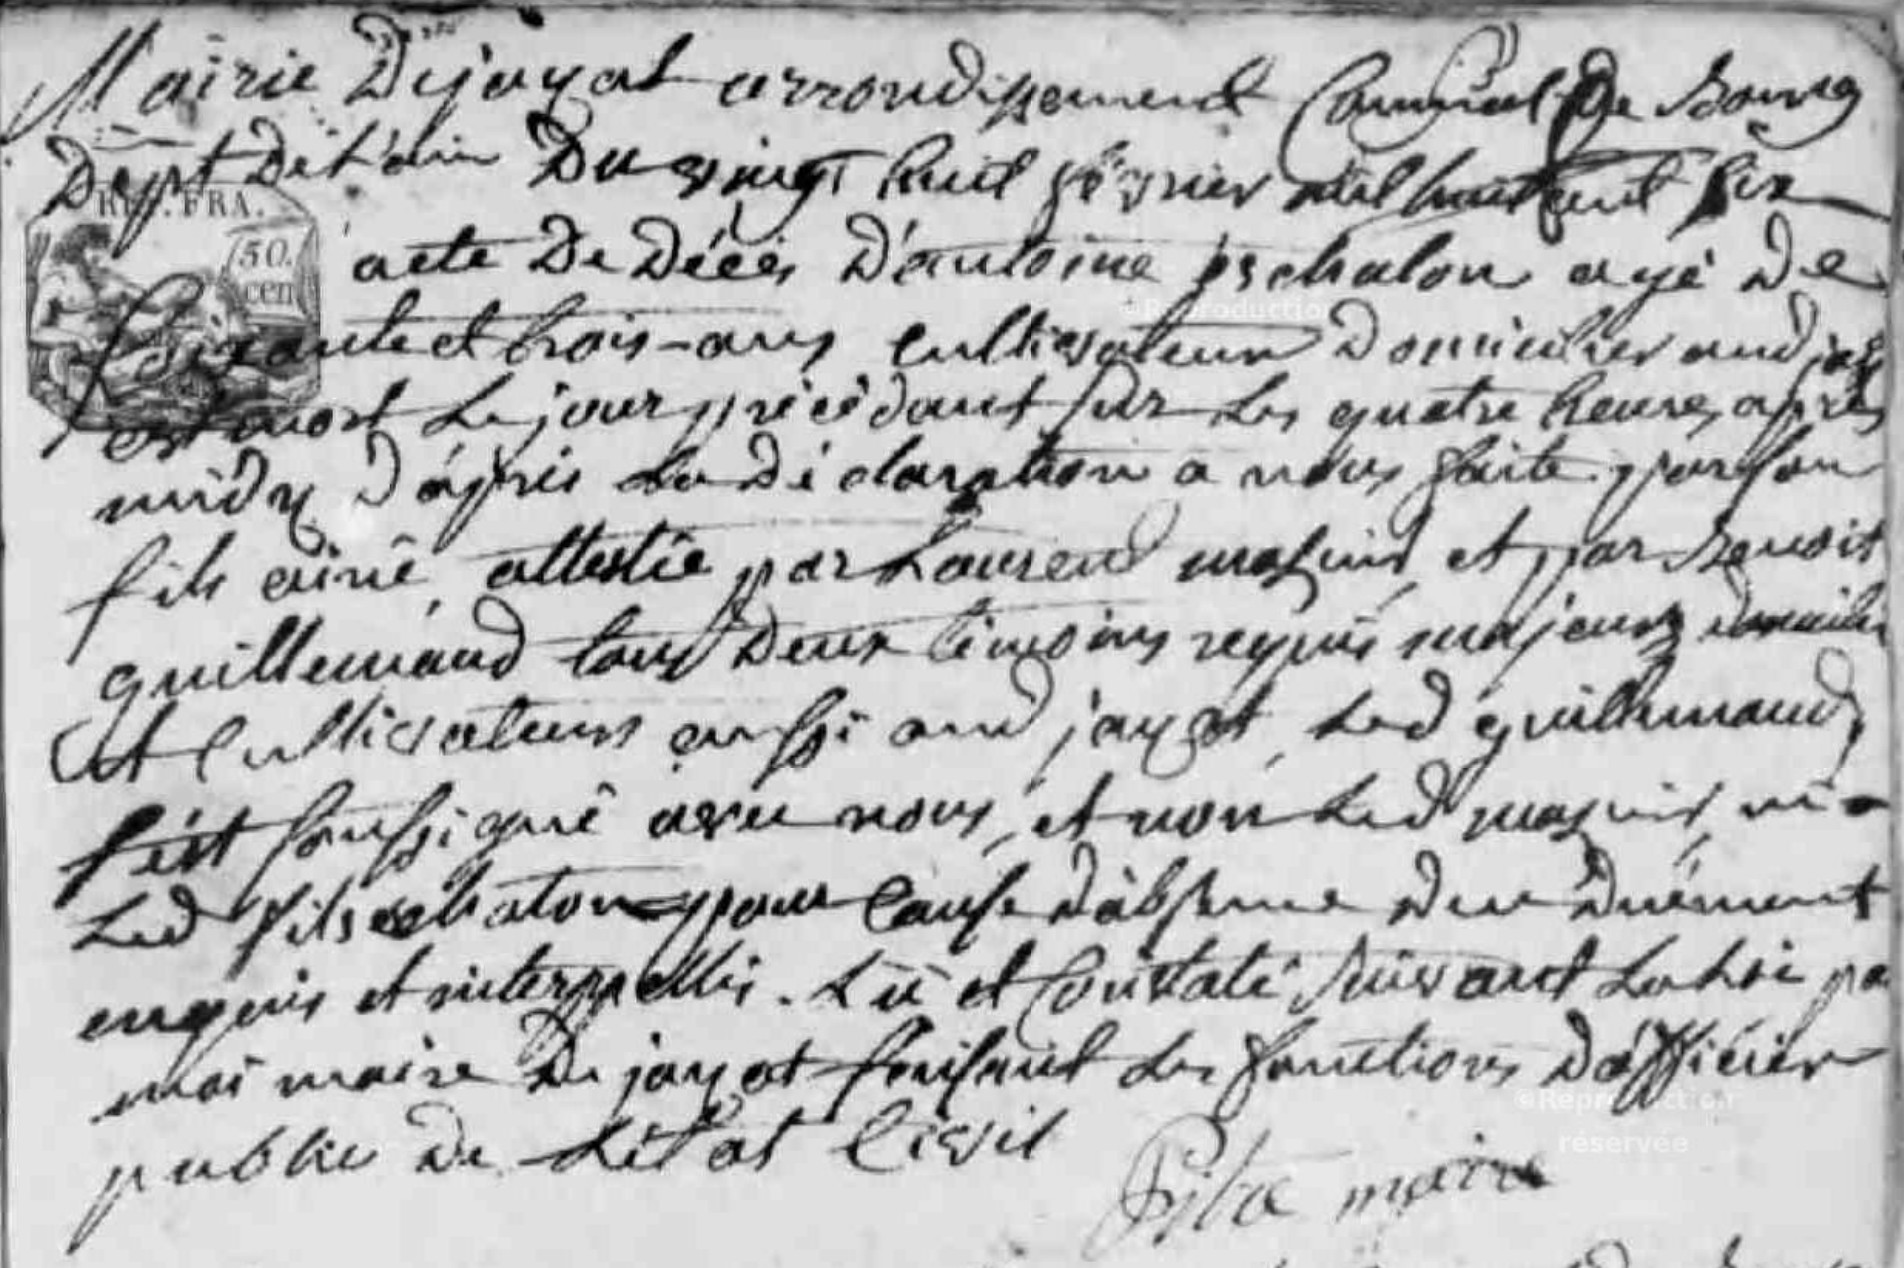 Mairie De jayat arrondissement Communal De Bourg
Dépt De L'ain Du vingt huit février mil huit cent six
REP. FRA.
50.
cen
acte De Décès D'antoine échalon agé De
soixante et trois-ans cultivateur Domicilier aud jayat
est mort Le jour précédant sur Les quatre heures après
midy D'après La Déclaration a nous faite par son
fils ainé, attestée par Laurend et par Benoit
guillemaud tous Deux témoins requis majeurs domiciliés
et Cultivateurs aussi aud jayat, Led guillemaud
s'est soussigné avec nous, et non Led ni
Led fils echalon pour Cause D'absence Dee Duément
enquis et interpellés. Lu et Constaté suivant La Loi pa
moi maire De jayat faisant Les fonctions D'officier
public De L'état Civil
maire
©Reproduction
©Reproduction
réservée